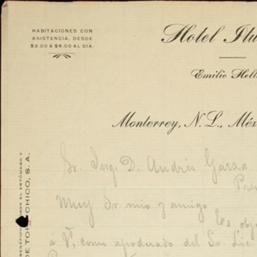 HABITACIONES CON
ASISTENCIA, DESDE
$3.00 A $6.00 AL DIA.
Hotel Itu
Emilio Hell
Monterrey, N. L., Méx
Sr. Ing. D. Andrés Garza
Pre
Muy Sr. mio y amigo
los obj
á V., como apoderado del Sr. Lic
DE TOPO CHICO, S. A.